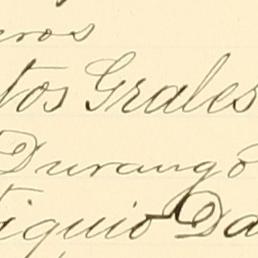 eros
tos Grales
Durango
tiquio Da